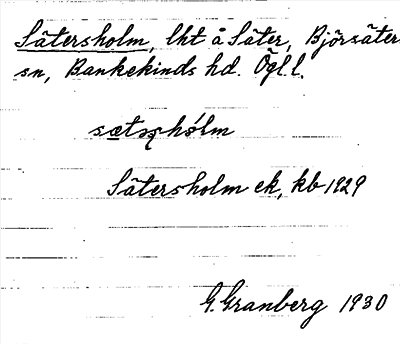 Sätersholm, lht å Säter, Björsäters
sn, Bankekinds hd. Ögl.l.
Sätersholm ek, kb 1929
G. Granberg 1930